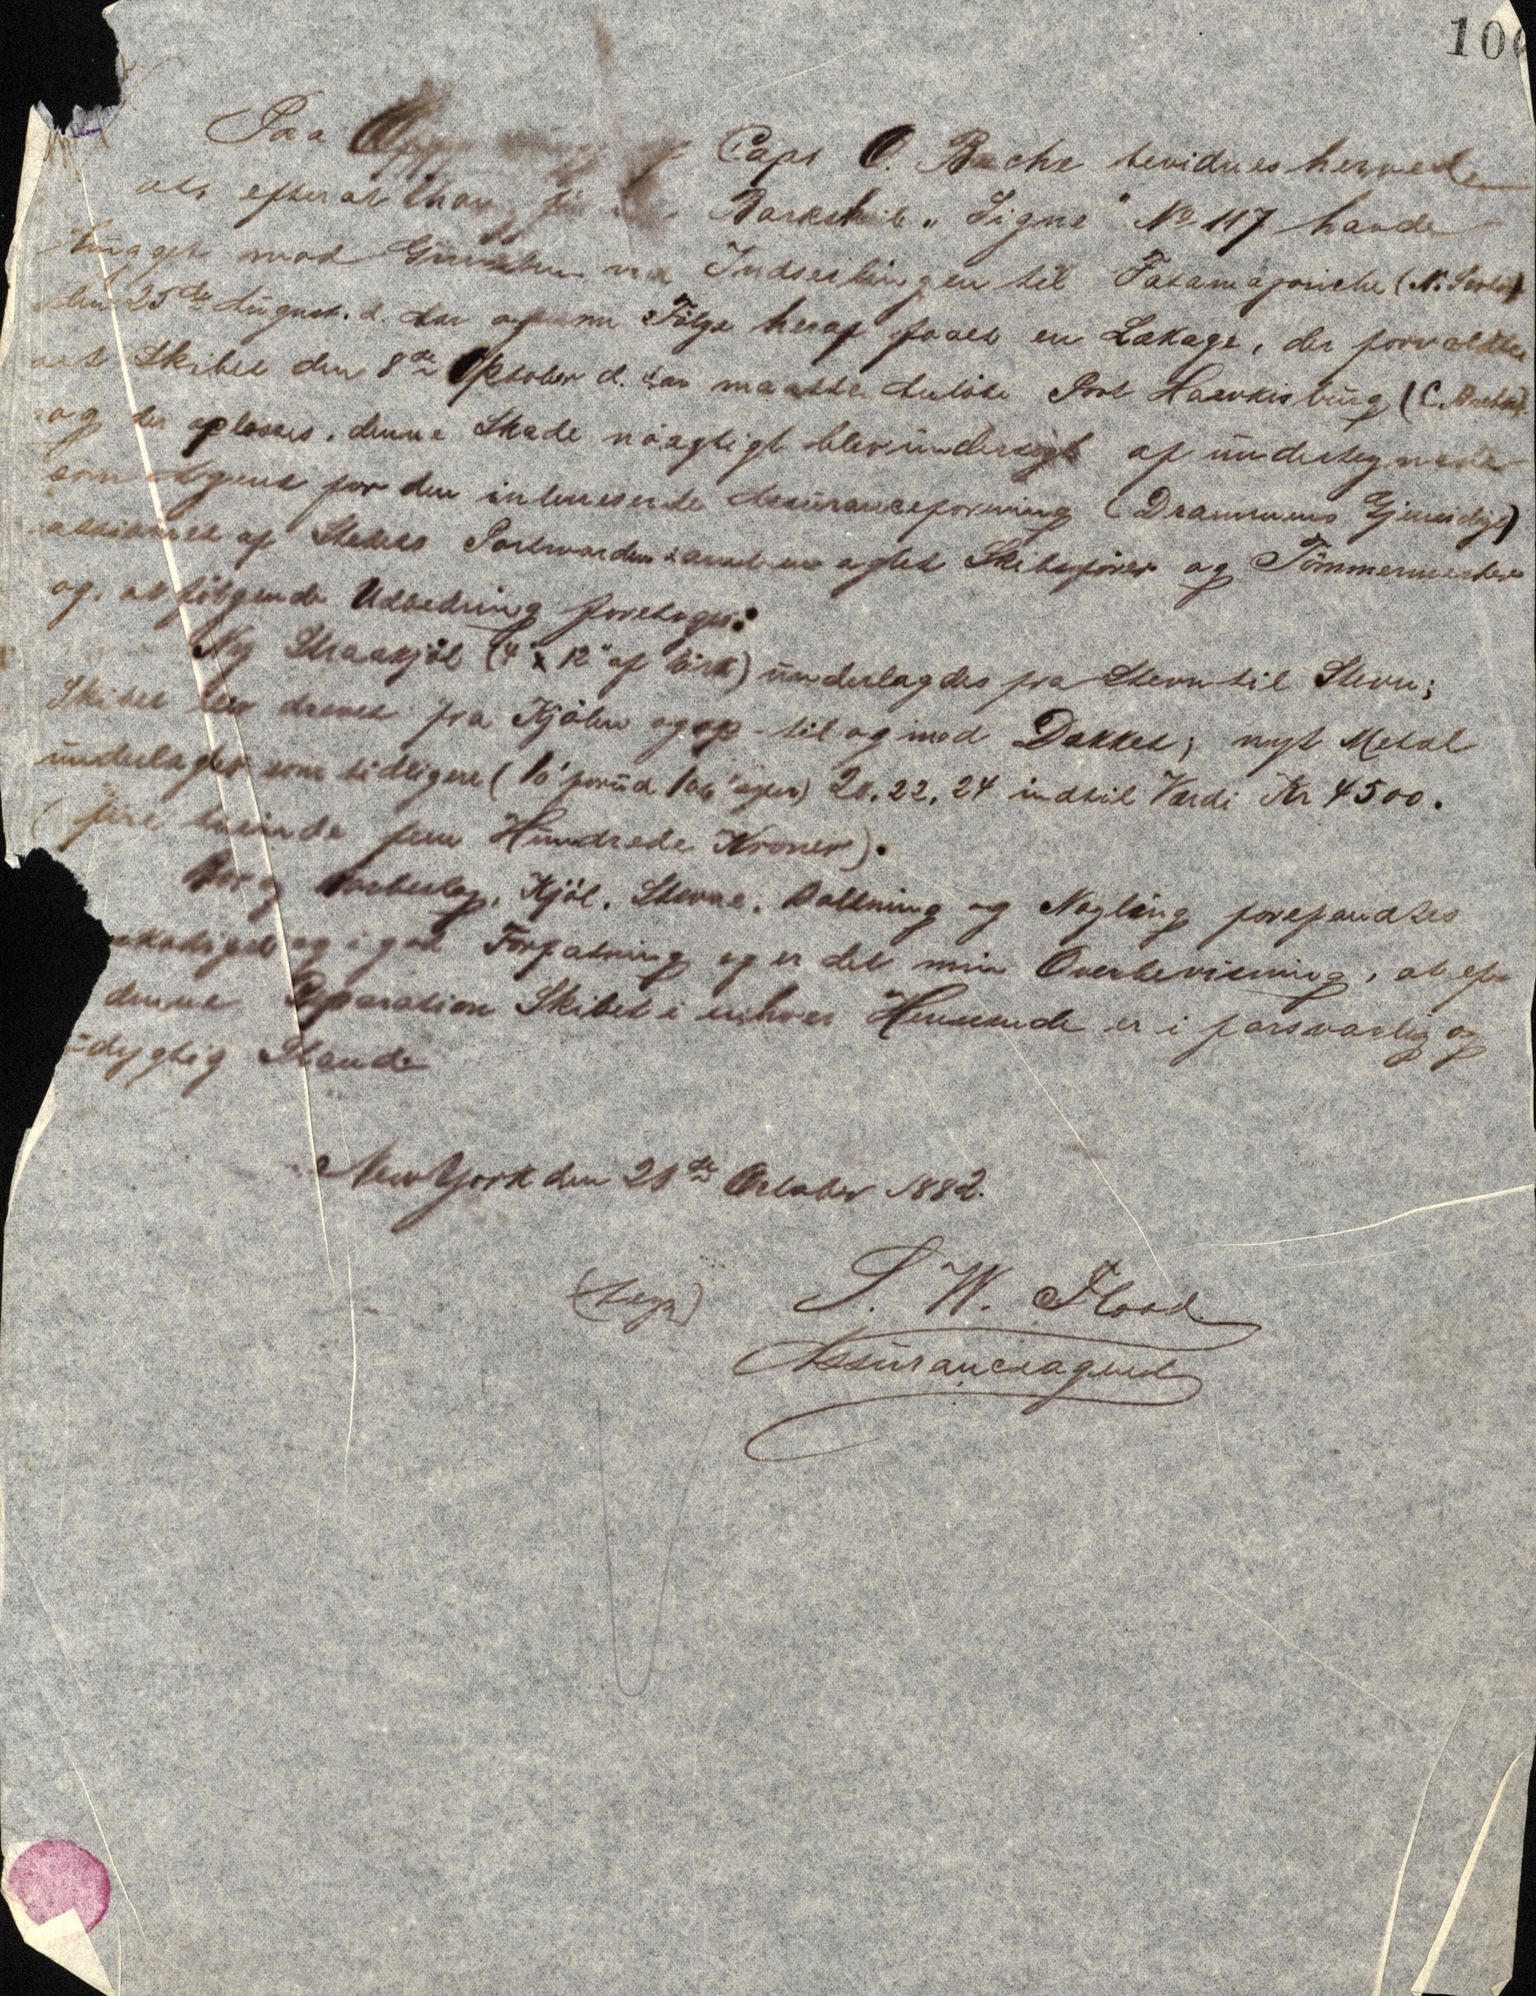 100
Paa Capt O. Bache bevidnes herved
at, efterat han Barkskib "Signe" No 117 havde
hugget mod Grunden ved Indseilingen til Tatamagouche (N. Scotia)
den 25de August d. Aar og som Følge heraf faaet en Lækage, der forvoldte
at Skibet den 8de Oktober d. Aar maatte Port Hawkisburg (C. Breton)
og der oplosses, denne Skade nöagtigt blev undersøgt af undertegnede
som Agent for den interesserede Assuranceforening (Drammens Gjensidige)
assisteret af Stedets Portwarden samt en agtet Skibsfører og Tömmermester
og, at følgende Udbedring foretoges:
Ny Straakjöl (4" x 12" af Birk) underlagdes fra Stevn til Stevn;
Skibet blev drevet fra Kjölen og op til og med Dækket; nyt Metal
underlagdes som tidligere (10' forud 106' agter) 20, 22, 24 indtil Værdi Kr 4500.
(fire tusinde fem Hundrede Kroner).
Kjöl, Stevne, Boltning og Nagling forefandtes
og i god Forfatning og er det min Overbevisning, at ef-
denne Reparation Skibet i enhver Henseende er i forsvarlig og
dygtig Stand
New York den 28de October 1882.
(sign) S. W. Flood
Assuranceagent